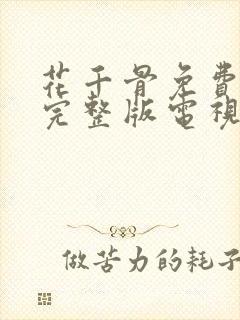 花千骨免費
完整版電視
做苦力的耗子